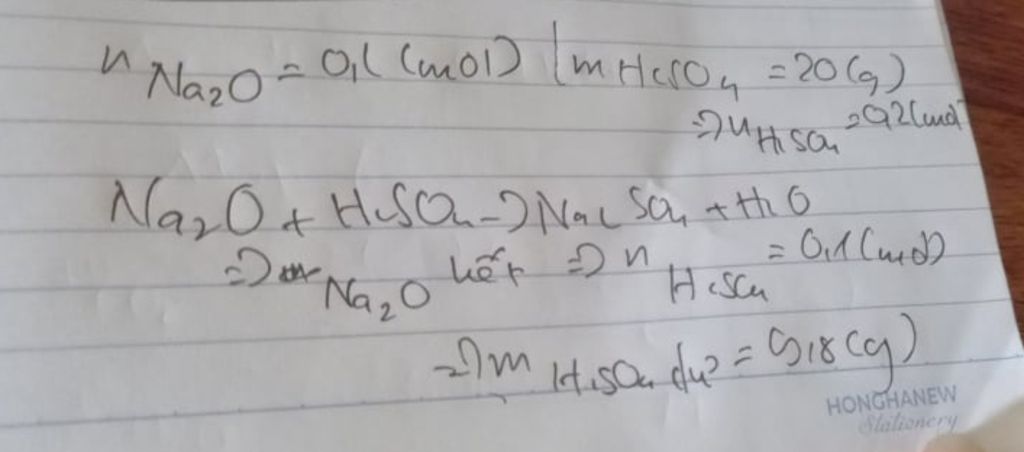 n Na₂O = 0,1 (mol) | m H₂SO₄ = 20 (g)
=> n H₂SO₄ = 0,2 (mol)
Na₂O + H₂SO₄ -> Na₂SO₄ + H₂O
=> Na₂O hết => n H₂SO₄ = 0,1 (mol)
=> m H₂SO₄ dư = 9,8 (g)
HONGHANEW
Stationery